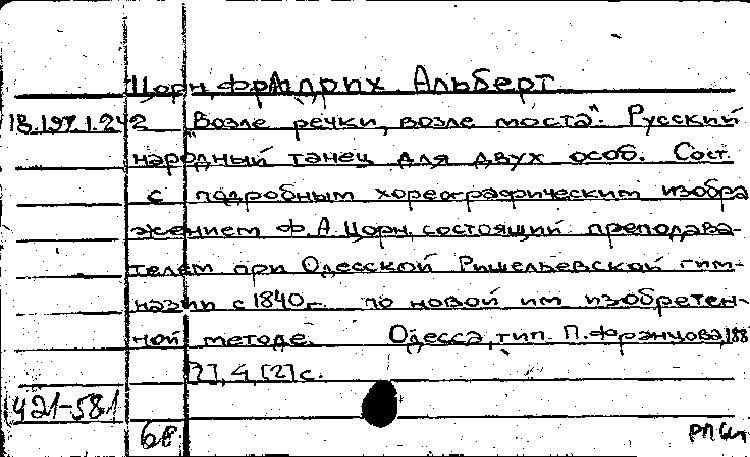 Цорн, Фридрих Альберт
18.197.1.242 "Возле речки, возле моста". Русский
народный танец для двух особ. Сост.
с подробным хореографическим изобра
жением Ф.А. Цорн, состоящий преподава-
телем при Одесской Ришельевской гим-
назии с 1840 г. по новой им изобретен-
ной методе. Одесса, тип. П. Францова, 188
?], 4 [2] с.
421-581
68